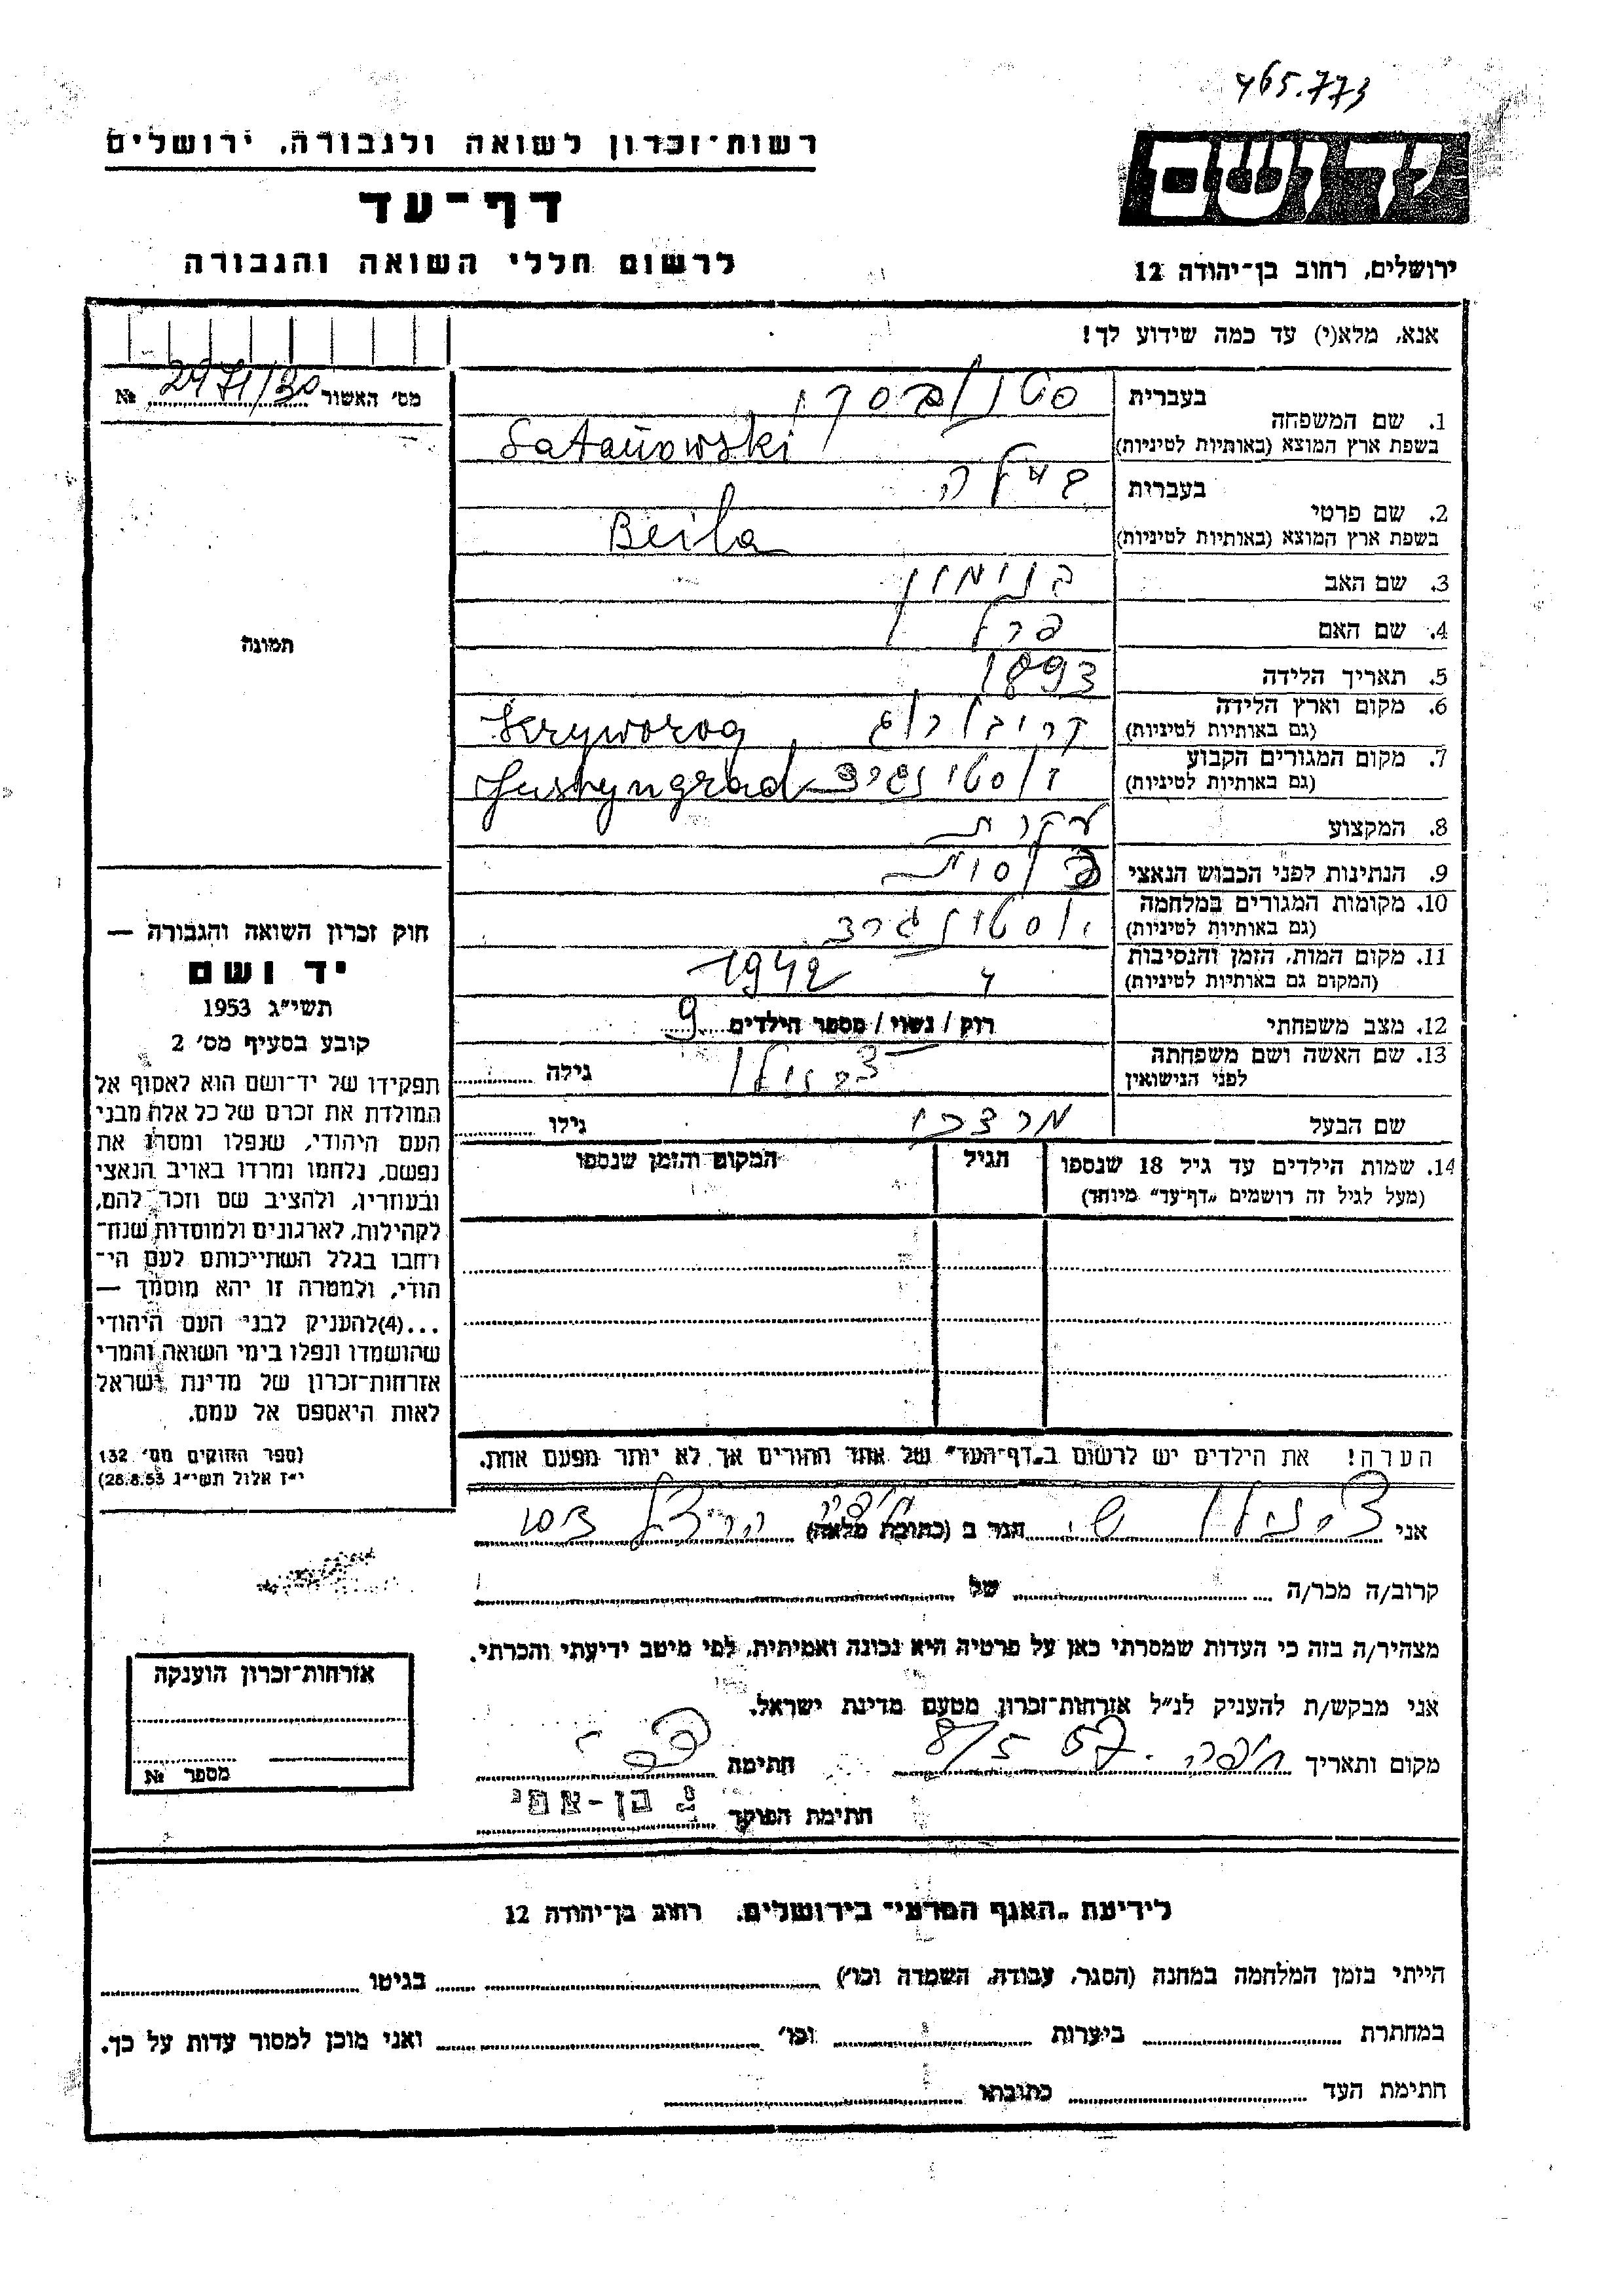 465.773
רשות־זכרון לשואה ולגבורה, ירושלים
יד ושם
דף־עד
לרשום חללי השואה והגבורה
ירושלים, רחוב בן־יהודה 12
אנא, מלא(י) עד כמה שידוע לך!
מס׳ האשור № 2471/30
1. שם המשפחה
בעברית סטנובסקי
בשפת ארץ המוצא (באותיות לטיניות) Satanowski
2. שם פרטי
בעברית ביילה
בשפת ארץ המוצא (באותיות לטיניות) Beila
3. שם האב בנימין
4. שם האם פרל
5. תאריך הלידה 1893
6. מקום וארץ הלידה
(גם באותיות לטיניות) קריבורוג Kryworog
7. מקום המגורים הקבוע
(גם באותיות לטיניות) יוסטינגרד Justyngrad
8. המקצוע עקרת
9. הנתינות לפני הכבוש הנאצי
10. מקומות המגורים במלחמה
(גם באותיות לטיניות) יוסטינגרד
11. מקום המות, הזמן והנסיבות
(המקום גם באותיות לטיניות) 1942
12. מצב משפחתי רוק / נשוי / מספר הילדים 9
13. שם האשה ושם משפחתה
לפני הנישואין גילה
שם הבעל מרדכי גילו
14. שמות הילדים עד גיל 18 שנספו הגיל המקום והזמן שנספו
(מעל לגיל זה רושמים „דף־עד״ מיוחד)
הערה! את הילדים יש לרשום ב„דף־העד״ של אחד ההורים אך לא יותר מפעם אחת.
תמונה
חוק זכרון השואה והגבורה —
יד ושם
תשי״ג 1953
קובע בסעיף מס׳ 2
תפקידו של יד־ושם הוא לאסוף אל
המולדת את זכרם של כל אלה מבני
העם היהודי, שנפלו ומסרו את
נפשם, נלחמו ומרדו באויב הנאצי
ובעוזריו, ולהציב שם וזכר להם,
לקהילות, לארגונים ולמוסדות שנח־
רחבו בגלל השתייכותם לעם הי־
הודי, ולמטרה זו יהא מוסמך —
...(4)להעניק לבני העם היהודי
שהושמדו ונפלו בימי השואה והמרי
אזרחות־זכרון של מדינת ישראל
לאות היאספם אל עמם.
(ספר החוקים מס׳ 132
י״ז אלול תשי״ג 28.8.53)
אני הגר ב (כתובת מלאה) חיפה הרצל
קרוב/ה מכר/ה של
מצהיר/ה בזה כי העדות שמסרתי כאן על פרטיה היא נכונה ואמיתית, לפי מיטב ידיעתי והכרתי.
אני מבקש/ת להעניק לנ״ל אזרחות־זכרון מטעם מדינת ישראל.
מקום ותאריך חיפה 8/5 57 חתימה
חתימת הפוקד בן-אמי
אזרחות־זכרון הוענקה
מספר №
לידיעת „האגף המדעי״ בירושלים, רחוב בן־יהודה 12
הייתי בזמן המלחמה במחנה (הסגר, עבודה, השמדה וכו׳) בגיטו
במחתרת ביערות וכו׳ ואני מוכן למסור עדות על כך.
חתימת העד כתובתו